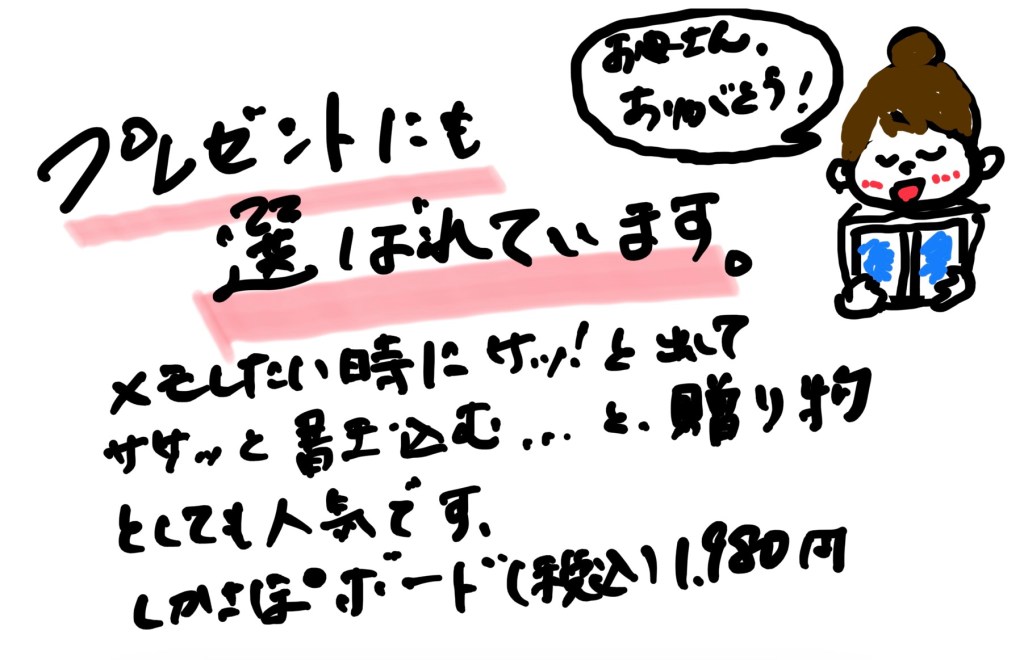 お母さん、
ありがとう!
プレゼントにも
選ばれています。
メモしたい時にサッ!と出して
ササッと書き込む...と、贈り物
としても人気です。
しかさぽボード(税込)1,980円